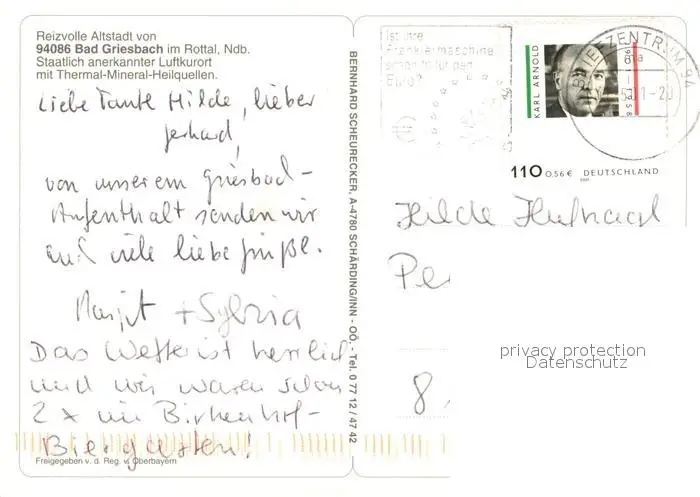 Reizvolle Altstadt von
94086 Bad Griesbach im Rottal, Ndb.
Staatlich anerkannter Luftkurort
mit Thermal-Mineral-Heilquellen.
Liebe Tante Hilde, lieber
Gerhard,
von unserem Griesbach-
Aufenthalt senden wir
auch viele liebe Grüße.
Margit + Sylvia
Das Wetter ist herrlich
und wir waren schon
2 x im Birkenhof-
Biergarten!
Freigegeben v. d. Reg. v. Oberbayern
BERNHARD SCHEURECKER, A-4780 SCHÄRDING/INN - OÖ. - Tel. 0 77 12 / 47 42
Ist Ihre
Frankiermaschine
schon fit für den
Euro?
KARL ARNOLD
BRIEFZENTRUM 94
110 0,56 € DEUTSCHLAND
Hilde
8
privacy protection
Datenschutz